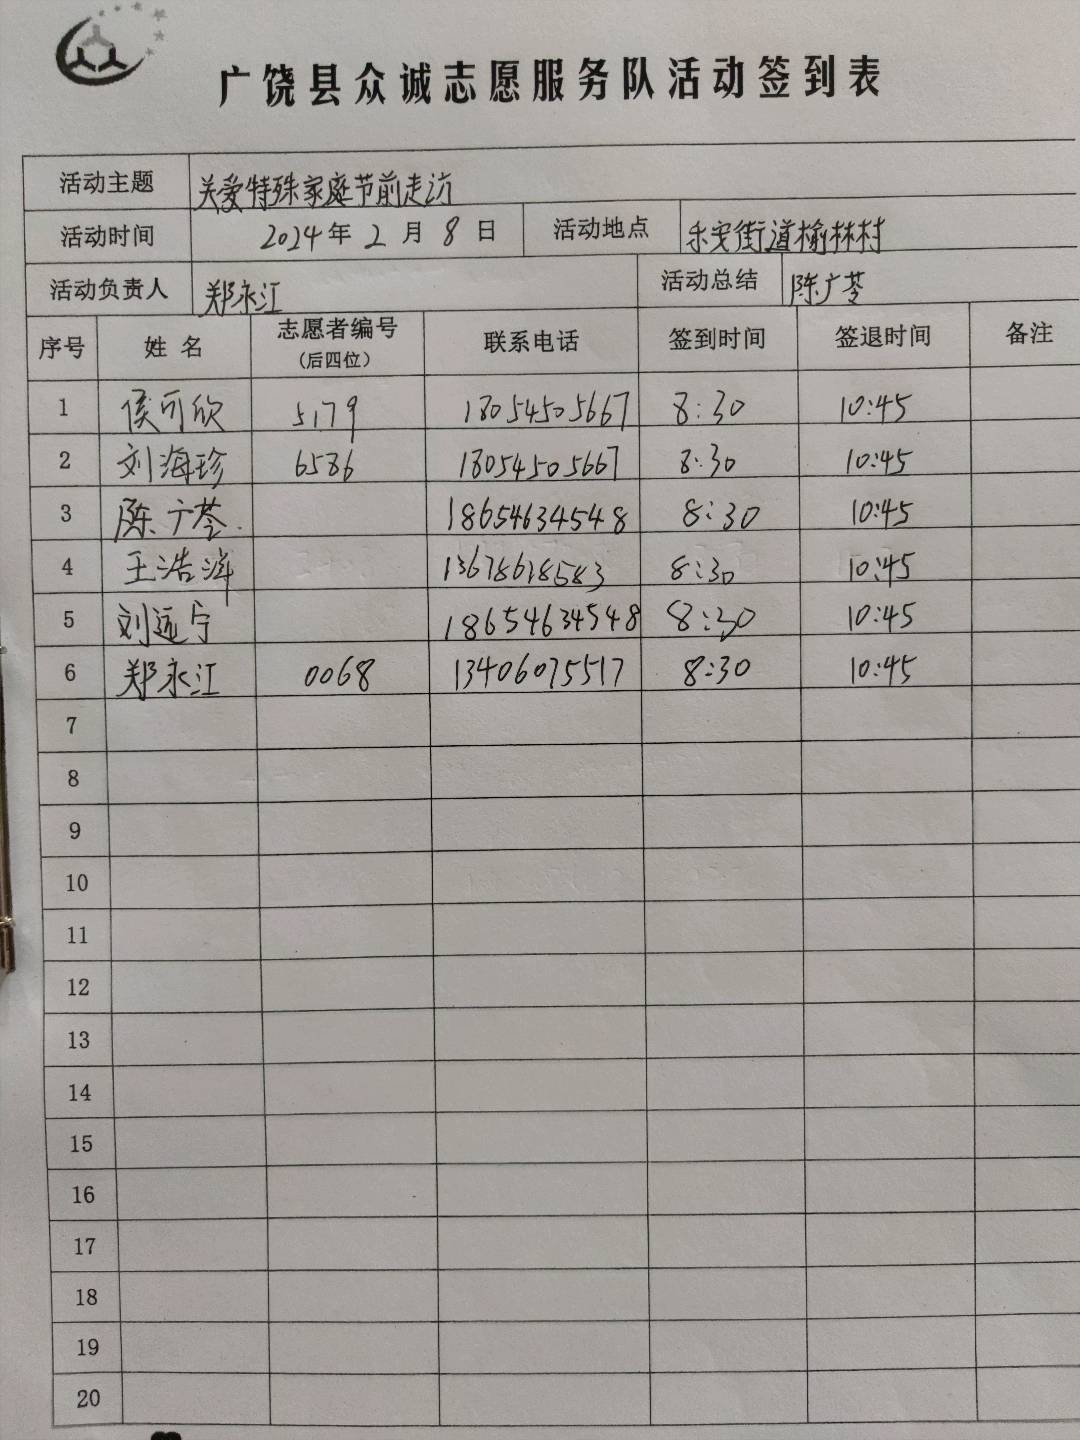 广饶县众诚志愿服务队活动签到表
活动主题 关爱特殊家庭节前走访
活动时间 2024年 2月 8日 活动地点 乐安街道榆林村
活动负责人 郑永江 活动总结 陈广苓
序号 姓名 志愿者编号（后四位） 联系电话 签到时间 签退时间 备注
1 侯可欣 5179 18054505667 8:30 10:45
2 刘海珍 6586 18054505667 8:30 10:45
3 陈广苓. 18654634548 8:30 10:45
4 王浩洋 13678618583 8:30 10:45
5 刘远宁 18654634548 8:30 10:45
6 郑永江 0068 13406075517 8:30 10:45
7
8
9
10
11
12
13
14
15
16
17
18
19
20